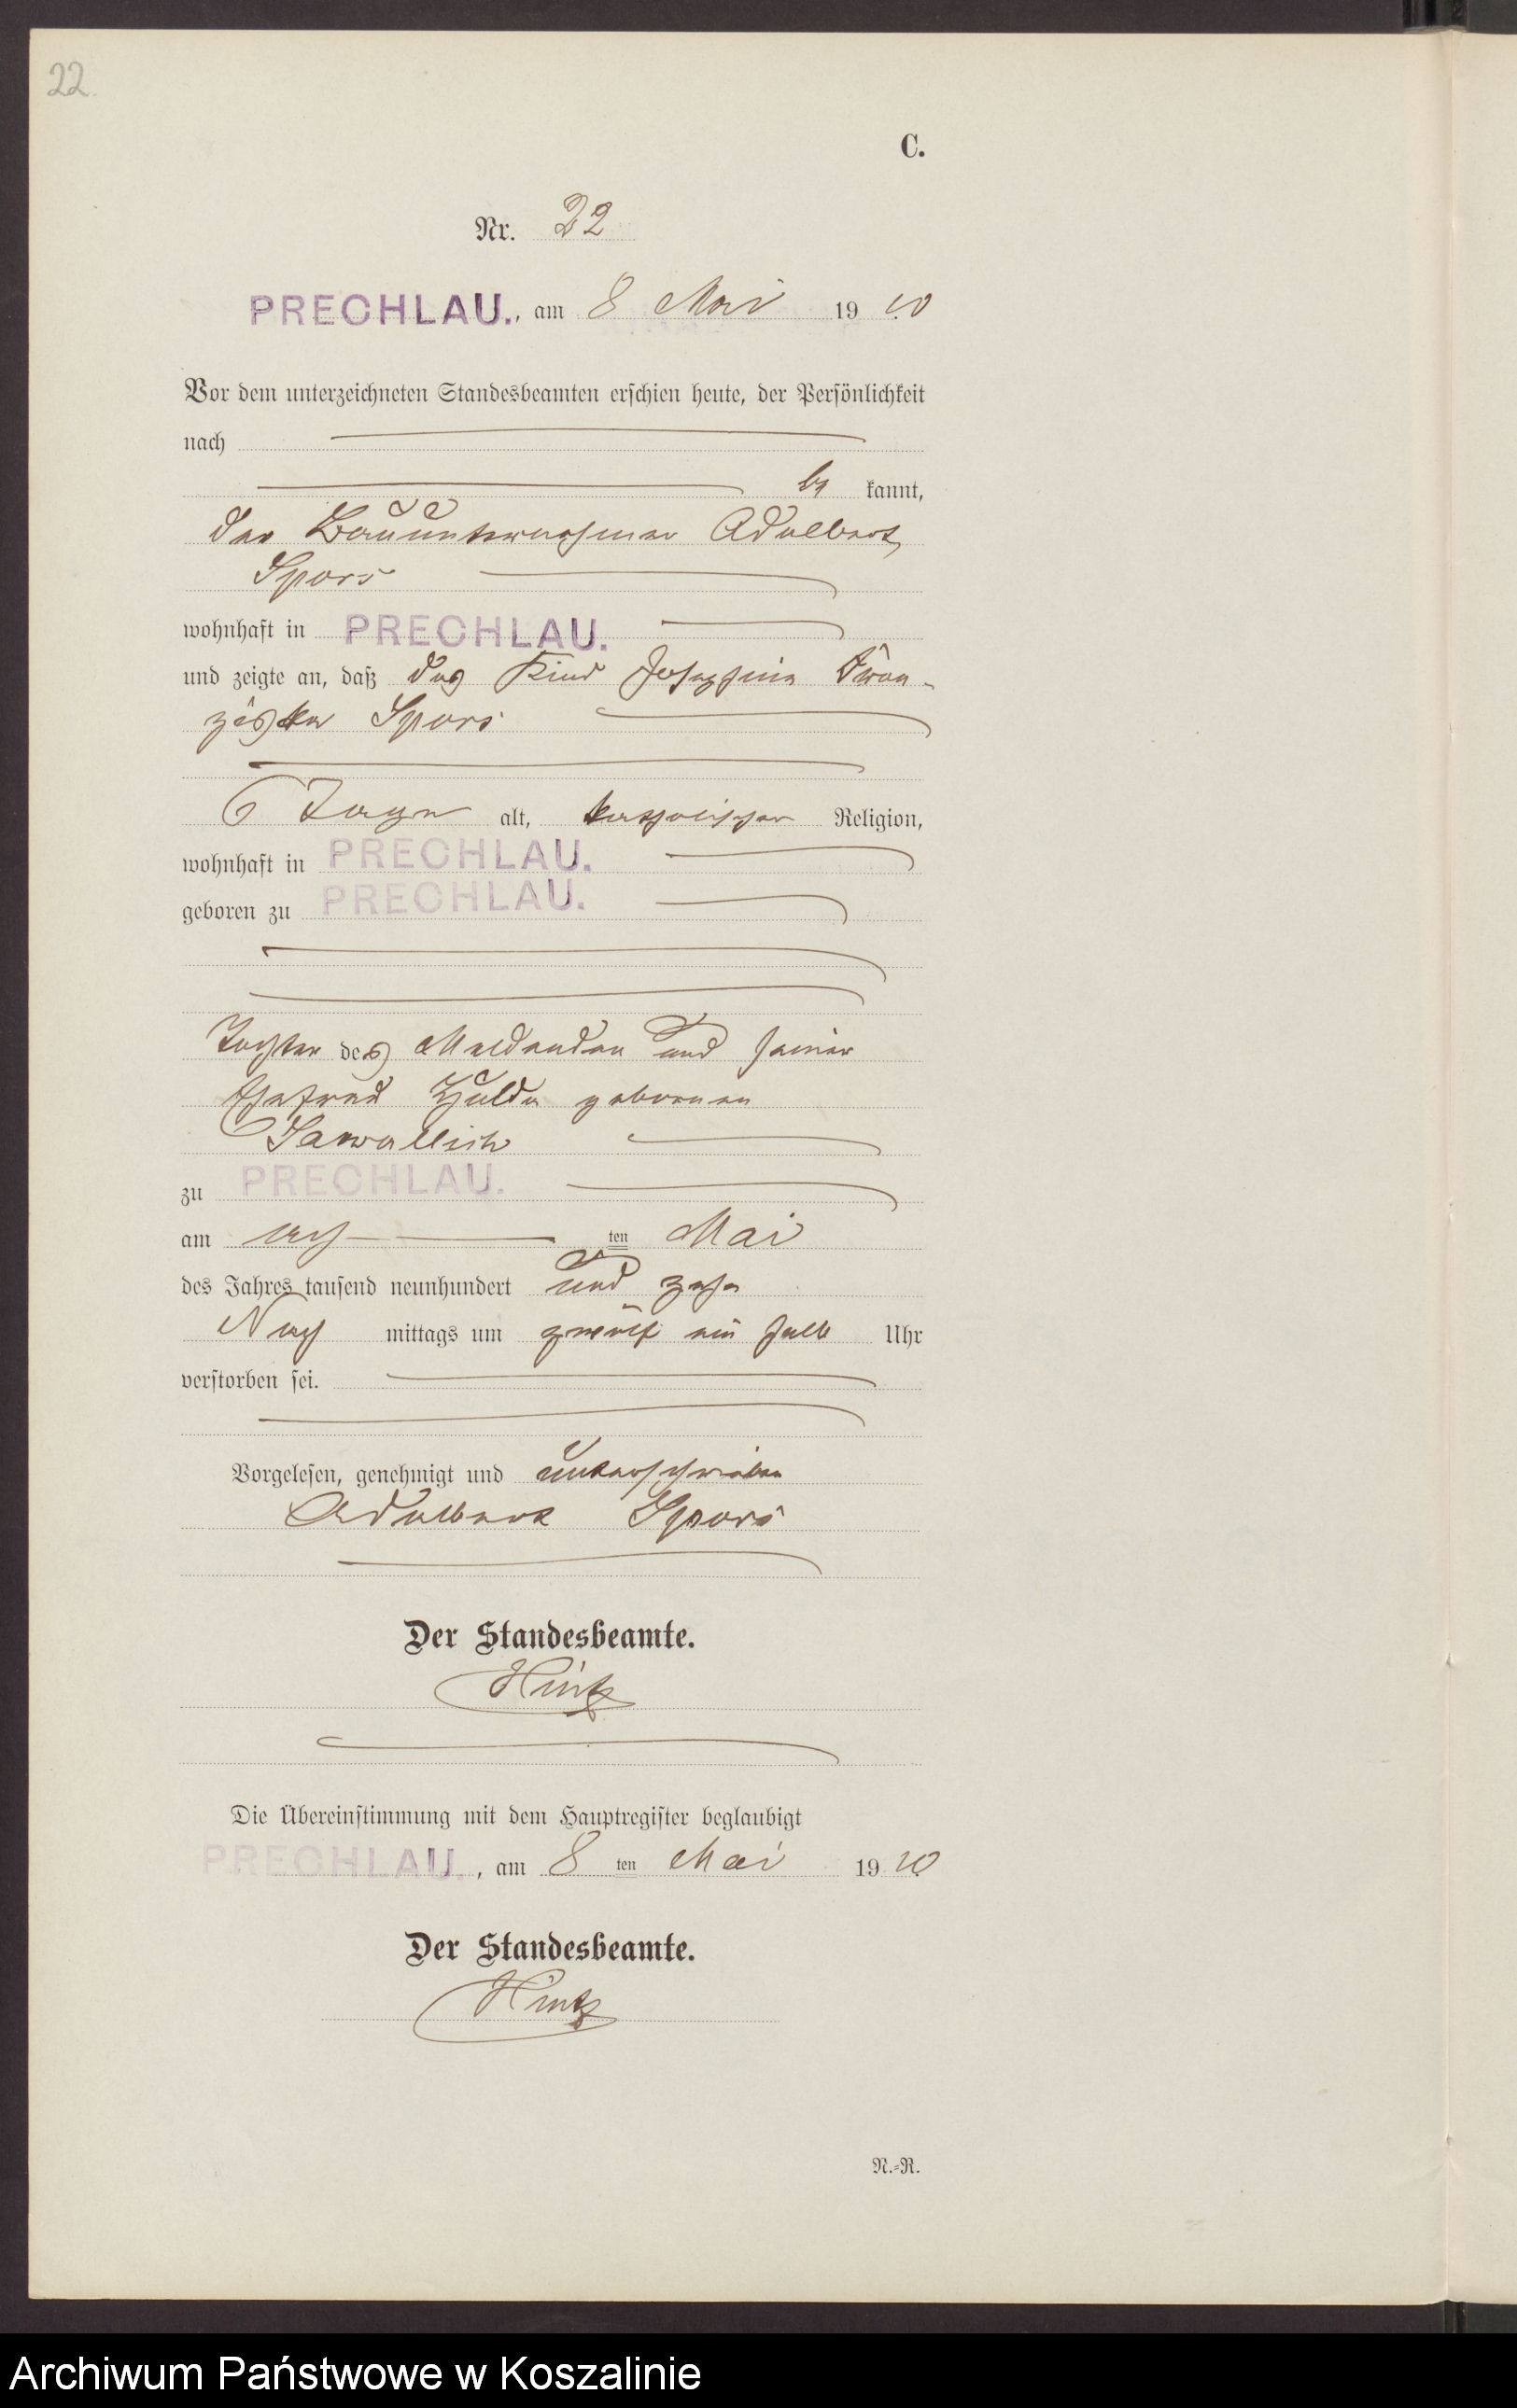 22.
C.
Nr. 22
PRECHLAU., am 8 Mai 1910
Vor dem unterzeichneten Standesbeamten erschien heute, der Persönlichkeit
nach
be kannt,
der Bauunternehmer Adalbert
Spors
wohnhaft in PRECHLAU.
und zeigte an, daß das Kind Josephine Fran-
ziska Spors
6 Tage alt, katholischer Religion,
wohnhaft in PRECHLAU.
geboren zu PRECHLAU.
Tochter des Meldenden und seiner
Ehefrau Hulda geborenen
Sawallich
zu PRECHLAU.
am ach ten Mai
des Jahres tausend neunhundert und zehn
Nach mittags um zwölf ein halb Uhr
verstorben sei.
Vorgelesen, genehmigt und unterschrieben
Adalbert Spors
Der Standesbeamte.
Hintz
Die Übereinstimmung mit dem Hauptregister beglaubigt
PRECHLAU., am 8 ten Mai 1910
Der Standesbeamte.
Hintz
N.-R.
Archiwum Państwowe w Koszalinie